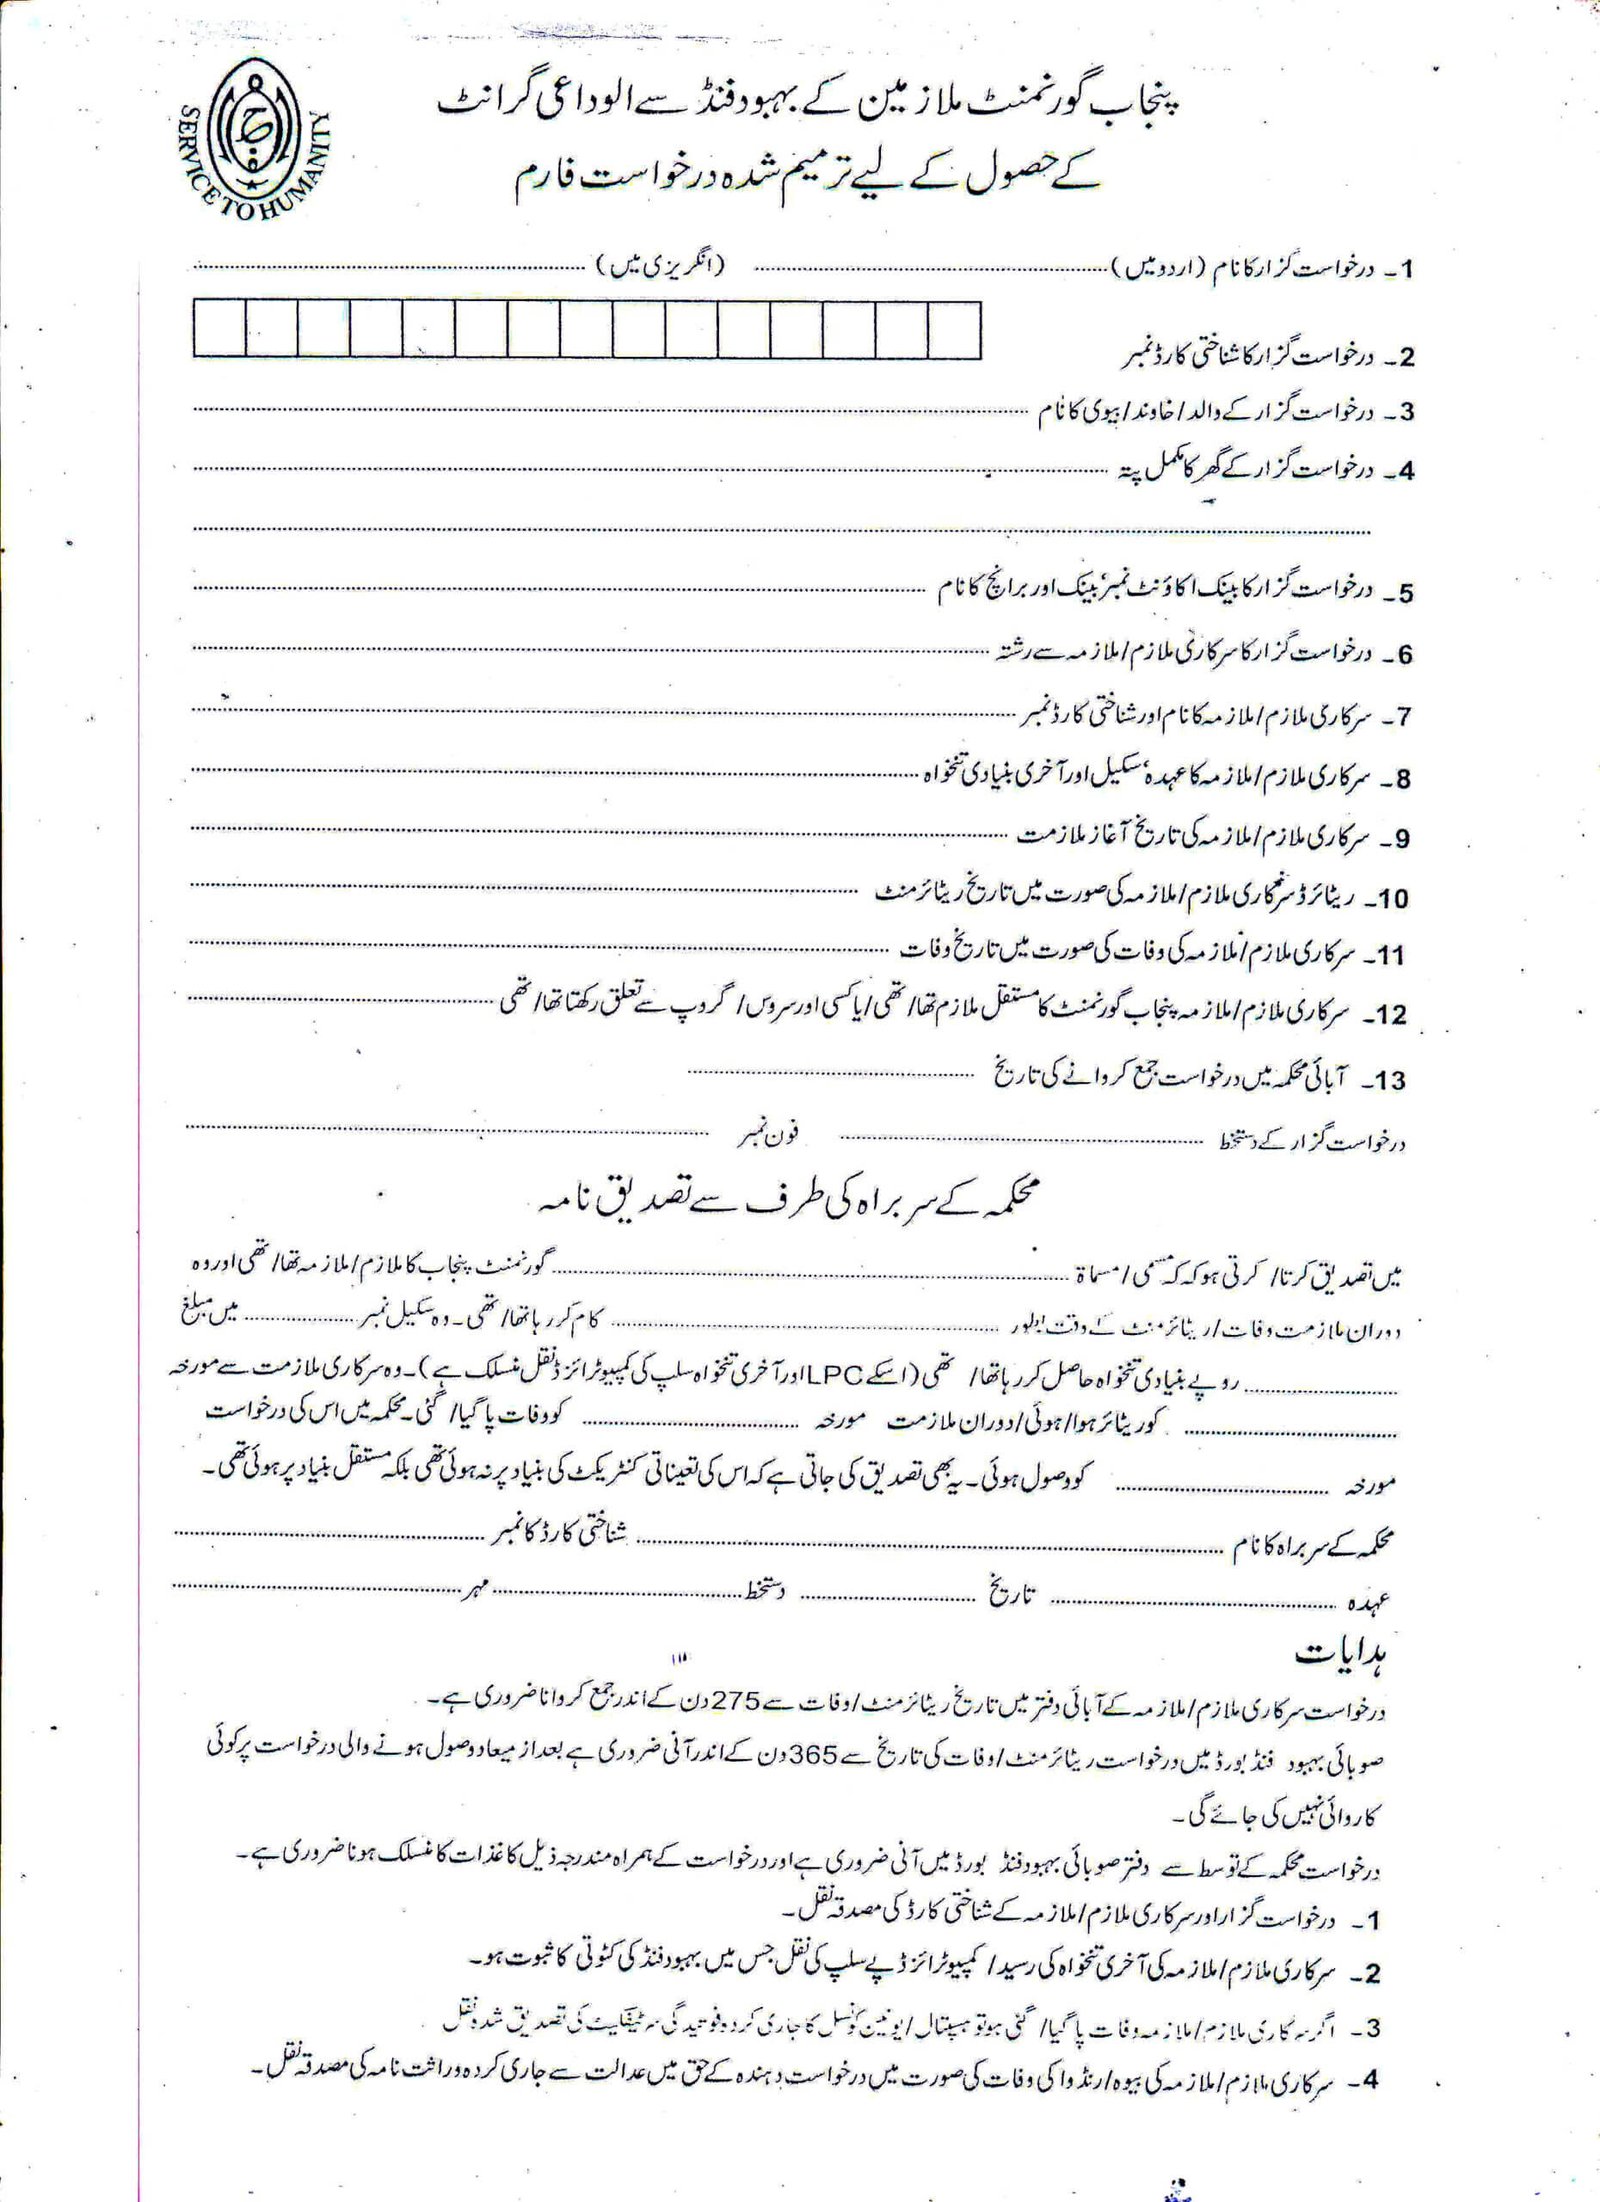 پنجاب گورنمنٹ ملازمین کے بہبود فنڈ سے الوداعی گرانٹ
کے حصول کے لیے ترمیم شدہ درخواست فارم
SERVICE TO HUMANITY
1۔ درخواست گزار کا نام (اردو میں) ........ (انگریزی میں) ........
2۔ درخواست گزار کا شناختی کارڈ نمبر
3۔ درخواست گزار کے والد/خاوند/بیوی کا نام ........
4۔ درخواست گزار کے گھر کا مکمل پتہ ........
5۔ درخواست گزار کا بینک اکاؤنٹ نمبر، بینک اور برانچ کا نام ........
6۔ درخواست گزار کا سرکاری ملازم/ملازمہ سے رشتہ ........
7۔ سرکاری ملازم/ملازمہ کا نام اور شناختی کارڈ نمبر ........
8۔ سرکاری ملازم/ملازمہ کا عہدہ، سکیل اور آخری بنیادی تنخواہ ........
9۔ سرکاری ملازم/ملازمہ کی تاریخ آغاز ملازمت ........
10۔ ریٹائرڈ سرکاری ملازم/ملازمہ کی صورت میں تاریخ ریٹائرمنٹ ........
11۔ سرکاری ملازم/ملازمہ کی وفات کی صورت میں تاریخ وفات ........
12۔ سرکاری ملازم/ملازمہ پنجاب گورنمنٹ کا مستقل ملازم تھا/تھی/یا کسی اور سروس/گروپ سے تعلق رکھتا تھا/تھی ........
13۔ آبائی محکمہ میں درخواست جمع کروانے کی تاریخ ........
درخواست گزار کے دستخط ........ فون نمبر ........
محکمہ کے سربراہ کی طرف سے تصدیق نامہ
میں تصدیق کرتا/کرتی ہو کہ کہ مسمی/مسماۃ ........ گورنمنٹ پنجاب کا ملازم/ملازمہ تھا/تھی اور وہ
دوران ملازمت وفات/ریٹائرمنٹ کے وقت بطور ........ کام کر رہا تھا/تھی۔ وہ سکیل نمبر ........ میں مبلغ
........ روپے بنیادی تنخواہ حاصل کر رہا تھا/تھی (اسکے LPC اور آخری تنخواہ سلپ کی کمپیوٹرائزڈ نقل منسلک ہے)۔ وہ سرکاری ملازمت سے مورخہ
........ کو ریٹائر ہوا/ہوئی/دوران ملازمت مورخہ ........ کو وفات پا گیا/گئی۔ محکمہ میں اس کی درخواست
مورخہ ........ کو وصول ہوئی۔ یہ بھی تصدیق کی جاتی ہے کہ اس کی تعیناتی کنٹریکٹ کی بنیاد پر نہ ہوئی تھی بلکہ مستقل بنیاد پر ہوئی تھی۔
محکمہ کے سربراہ کا نام ........ شناختی کارڈ کا نمبر ........
عہدہ ........ تاریخ ........ دستخط ........ مہر ........
ہدایات
درخواست سرکاری ملازم/ملازمہ کے آبائی دفتر میں تاریخ ریٹائرمنٹ/وفات سے 275 دن کے اندر جمع کروانا ضروری ہے۔
صوبائی بہبود فنڈ بورڈ میں درخواست ریٹائرمنٹ/وفات کی تاریخ سے 365 دن کے اندر آنی ضروری ہے بعد از میعاد وصول ہونے والی درخواست پر کوئی
کاروائی نہیں کی جائے گی۔
درخواست محکمہ کے توسط سے دفتر صوبائی بہبود فنڈ بورڈ میں آنی ضروری ہے اور درخواست کے ہمراہ مندرجہ ذیل کاغذات کا منسلک ہونا ضروری ہے۔
1۔ درخواست گزار اور سرکاری ملازم/ملازمہ کے شناختی کارڈ کی مصدقہ نقل۔
2۔ سرکاری ملازم/ملازمہ کی آخری تنخواہ کی رسید/کمپیوٹرائزڈ پے سلپ کی نقل جس میں بہبود فنڈ کی کٹوتی کا ثبوت ہو۔
3۔ اگر سرکاری ملازم/ملازمہ وفات پا گیا/گئی ہو تو ہسپتال/یونین کونسل کا جاری کردہ فوتیدگی سرٹیفکیٹ کی تصدیق شدہ نقل
4۔ سرکاری ملازم/ملازمہ کی بیوہ/رنڈوا کی وفات کی صورت میں درخواست دہندہ کے حق میں عدالت سے جاری کردہ وراثت نامہ کی مصدقہ نقل۔